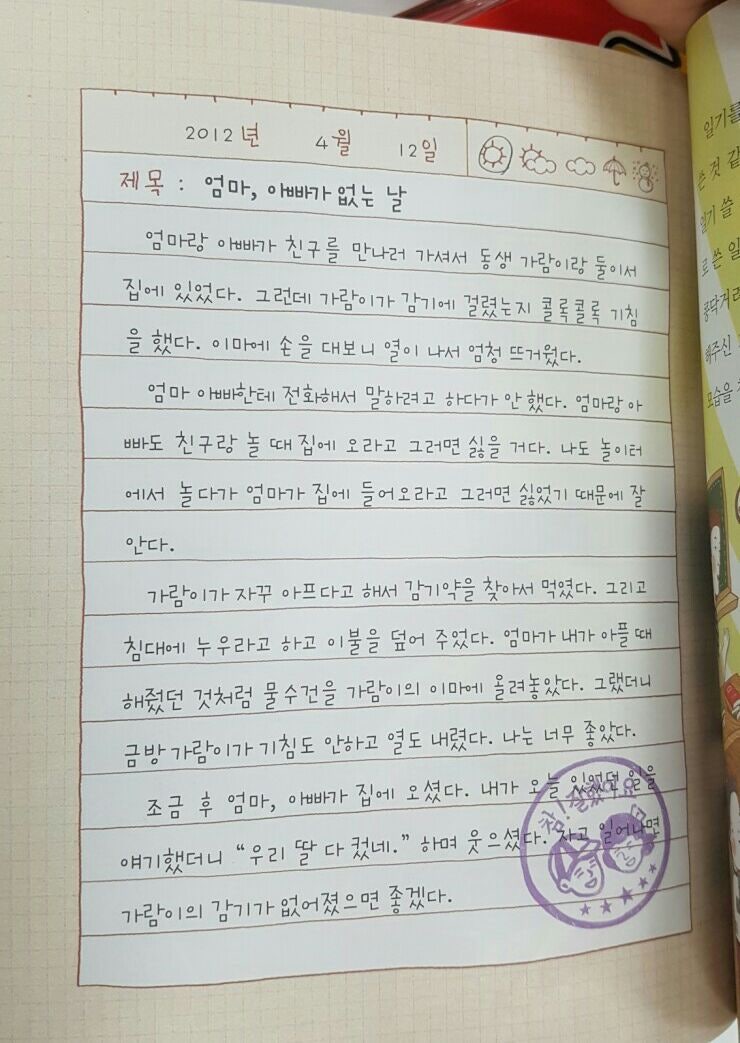 2012년 4월 12일
제목 : 엄마, 아빠가 없는 날
엄마랑 아빠가 친구를 만나러 가셔서 동생 가람이랑 둘이서
집에 있었다. 그런데 가람이가 감기에 걸렸는지 콜록콜록 기침
을 했다. 이마에 손을 대보니 열이 나서 엄청 뜨거웠다.
엄마 아빠한테 전화해서 말하려고 하다가 안 했다. 엄마랑 아
빠도 친구랑 놀 때 집에 오라고 그러면 싫을 거다. 나도 놀이터
에서 놀다가 엄마가 집에 들어오라고 그러면 싫었기 때문에 잘
안다.
가람이가 자꾸 아프다고 해서 감기약을 찾아서 먹였다. 그리고
침대에 누우라고 하고 이불을 덮어 주었다. 엄마가 내가 아플 때
해줬던 것처럼 물수건을 가람이의 이마에 올려놓았다. 그랬더니
금방 가람이가 기침도 안하고 열도 내렸다. 나는 너무 좋았다.
조금 후 엄마, 아빠가 집에 오셨다. 내가 오늘 있었던 일을
얘기했더니 “우리 딸 다 컸네.” 하며 웃으셨다. 자고 일어나면
가람이의 감기가 없어졌으면 좋겠다.
참! 잘했어요
일기를
쓴 것 같
일기 쓸
로 쓴 일
콩닥거리
해주신
모습을